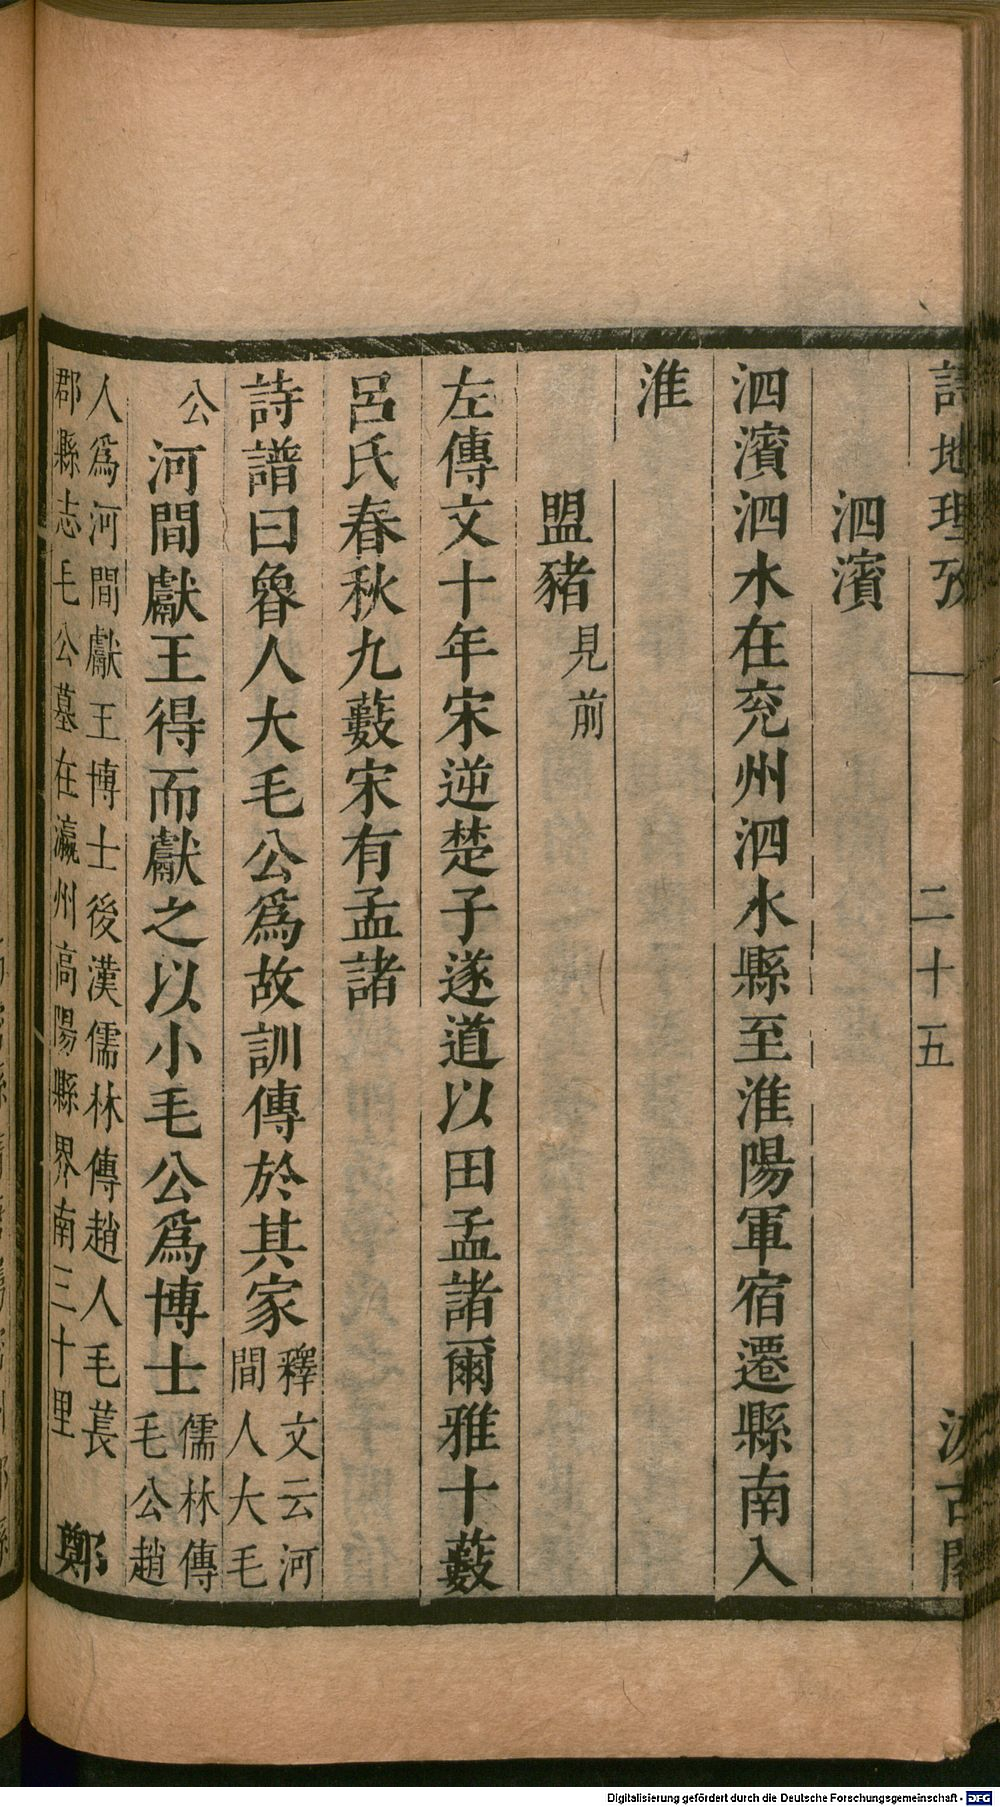 詩地理攷 二十五 汲古閣
泗濱
泗濱泗水在兖州泗水縣至淮陽軍宿遷縣南入
淮
盟豬見前
左傳文十年宋逆楚子遂道以田孟諸爾雅十藪
呂氏春秋九藪宋有孟諸
詩譜曰魯人大毛公爲故訓傳於其家釋文云河間人大毛
公河間獻王得而獻之以小毛公爲博士儒林傳毛公趙
人爲河間獻王博士後漢儒林傳趙人毛萇
郡縣志毛公墓在瀛州高陽縣界南三十里
鄭
Digitalisierung gefördert durch die Deutsche Forschungsgemeinschaft - DFG